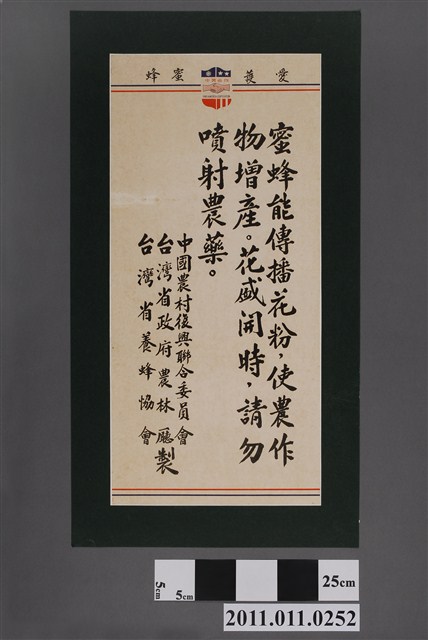 愛護蜜蜂
蜜蜂能傳播花粉，使農作
物增產。花盛開時，請勿
噴射農藥。
中國農村復興聯合委員會
台灣省政府農林廳製
台灣省養蜂協會
5cm
5cm
25cm
2011.011.0252